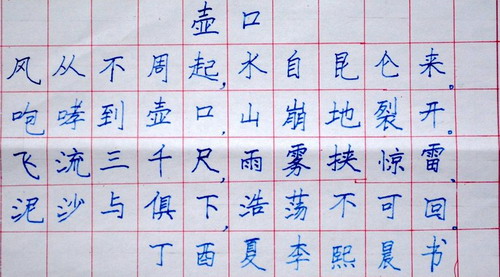 壶口
风从不周起,水自昆仑来。
咆哮到壶口,山崩地裂开。
飞流三千尺,雨雾挟惊雷、
泥沙与俱下,浩荡不可回。
丁酉夏李熙晨书